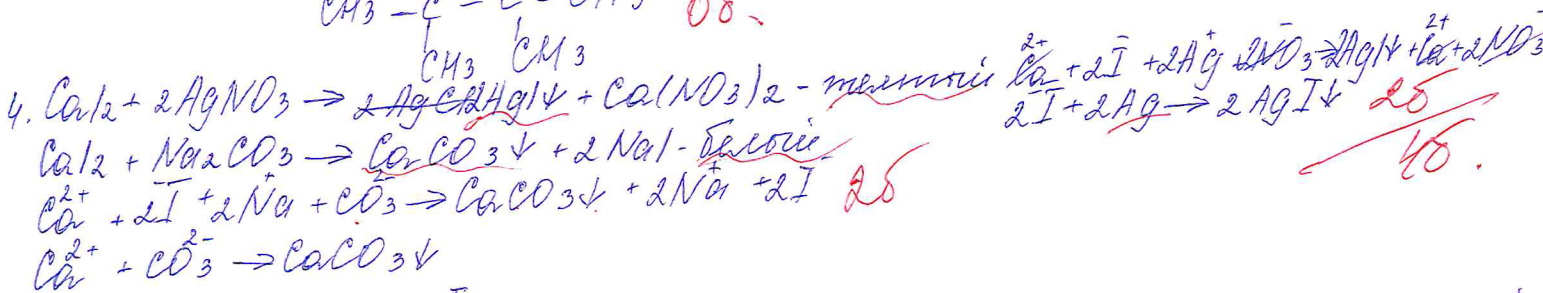 CH3 – C – C – CH3 0б.
CH3 CH3
4. CaI2 + 2AgNO3 → 2AgI↓ + Ca(NO3)2 – желтый
Ca²⁺ + 2I⁻ + 2Ag⁺ + 2NO3⁻ → 2AgI↓ + Ca²⁺ + 2NO3⁻
2I⁻ + 2Ag → 2AgI↓ 2б
4б.
CaI2 + Na2CO3 → CaCO3↓ + 2NaI – белый
Ca²⁺ + 2I⁻ + 2Na⁺ + CO3²⁻ → CaCO3↓ + 2Na⁺ + 2I⁻ 2б
Ca²⁺ + CO3²⁻ → CaCO3↓